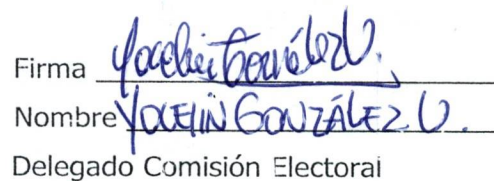 Firma Yocelin González U.
Nombre YOCELIN GONZÁLEZ U.
Delegado Comisión Electoral